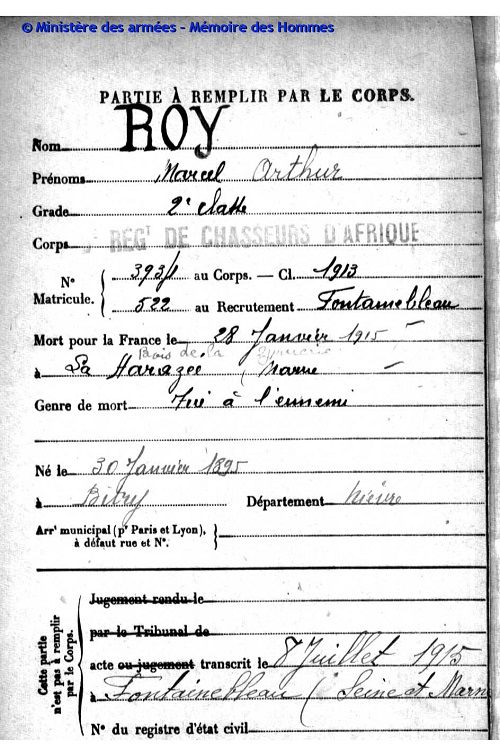 © Ministère des armées - Mémoire des Hommes
PARTIE À REMPLIR PAR LE CORPS.
Nom ROY
Prénoms Marcel Arthur
Grade 2e classe
Corps REGT DE CHASSEURS D'AFRIQUE
N° Matricule. { 3931 au Corps. — Cl. 1913
522 au Recrutement Fontainebleau
Mort pour la France le 28 Janvier 1915
Bois de la
à La Harazée (Marne
Genre de mort Tué à l'ennemi
Né le 30 Janvier 1895
à Bitry Département Nièvre
Arrt municipal (pr Paris et Lyon), à défaut rue et N°. }
Cette partie n'est pas à remplir par le Corps. {
Jugement rendu le
par le Tribunal de
acte ou jugement transcrit le 8 Juillet 1915
à Fontainebleau (Seine et Marne
N° du registre d'état civil